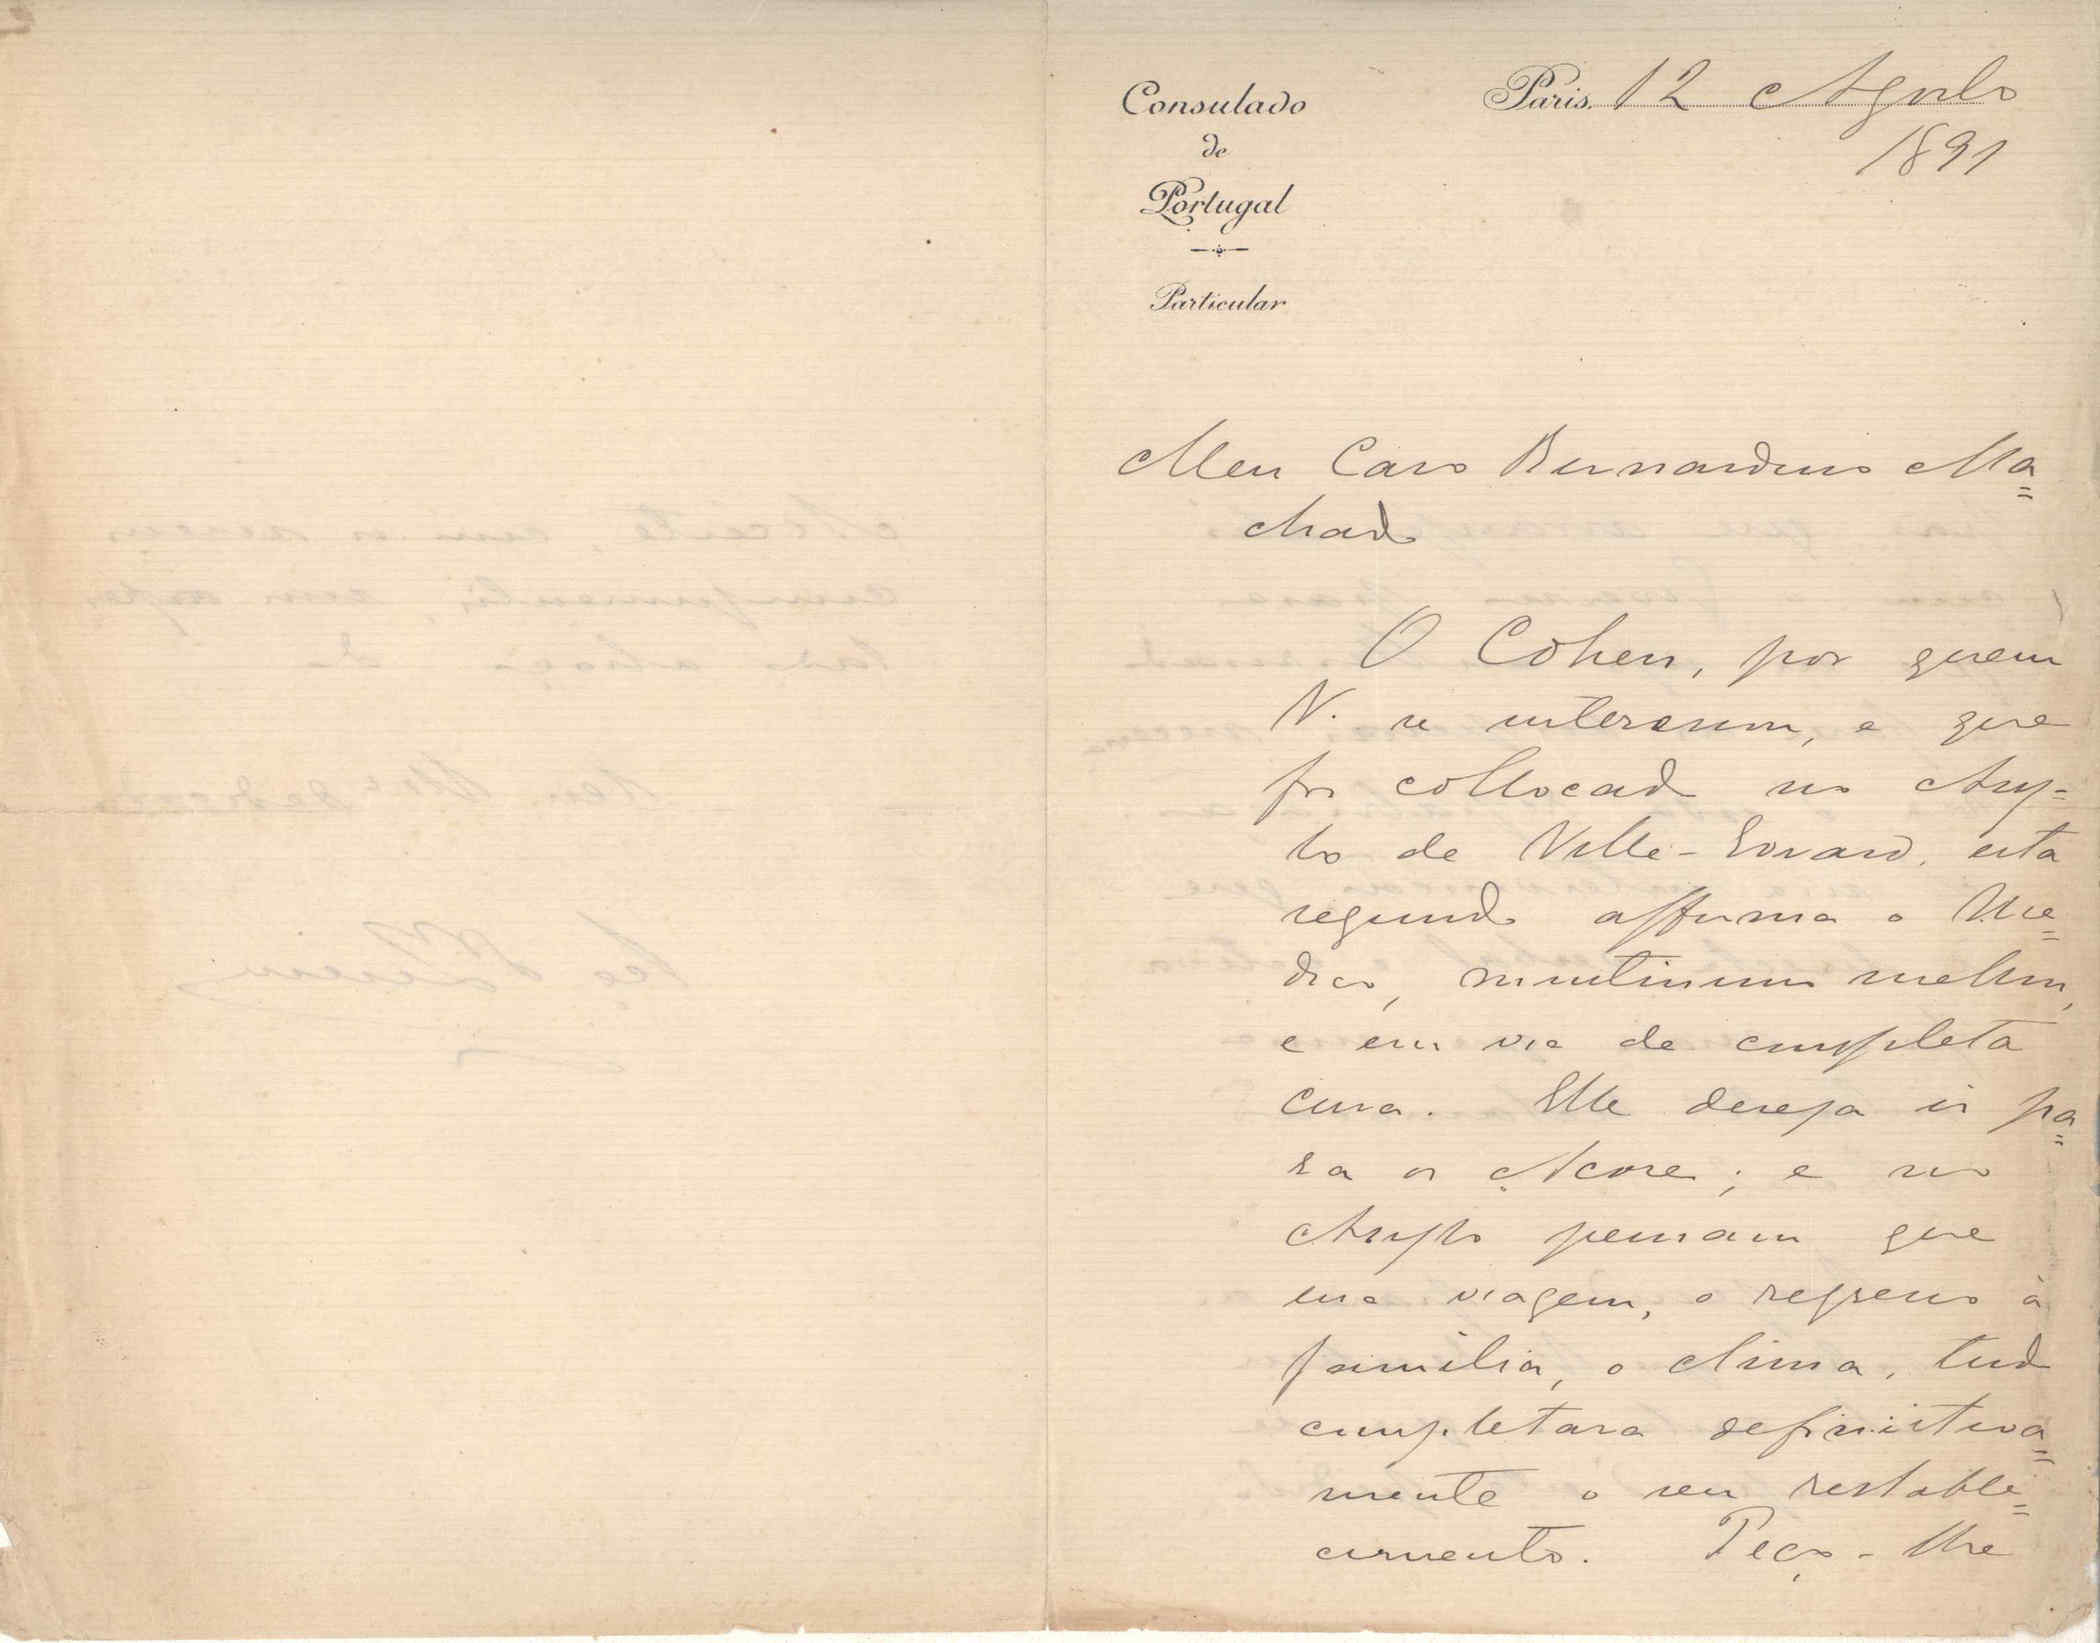 Consulado
de
Portugal
Particular
Paris. 12 Agosto
1891
Meu Caro Bernardino Ma=
chado
O Cohen, por quem
V. se interessou, e que
foi collocado no Asy=
lo de Ville-Evrard, esta
segundo affirma o Me=
dico, muitissimo melhor,
e em via de completa
cura. Elle deseja ir pa=
ra os Açores; e no
Asylo pensam que
essa viagem, o regresso à
familia, o clima, tudo
completara definitiva=
mente o seu restabele=
cimento. Peço-lhe